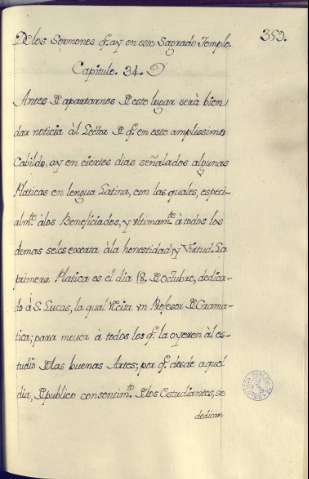 353.
De los Sermones q̃ ay en este Sagrado Templo.
Capitulo. 34.
Antes D apartarnos D este lugar será bien
dar noticia àl Lector D q̃ en este amplissimo
Cabildo, ay en ciertos dias señalados algunas
Platicas en lengua Latina, con las quales, especi-
almte. àlos Beneficiados, y ultimamte. à todos los
demas seles exorta àla honestidad, y Virtud. La
primera Platica es el dia 18. D Octubre, dedica-
do à S. Lucas, la qual recita vn Profesor D Grama-
tica; para mover à todos los q̃ la oyeren àl es-
tudio D las buenas Artes; por q̃ desde aquel
dia, D publico consentimto. D los Estudiantes, se
dedican